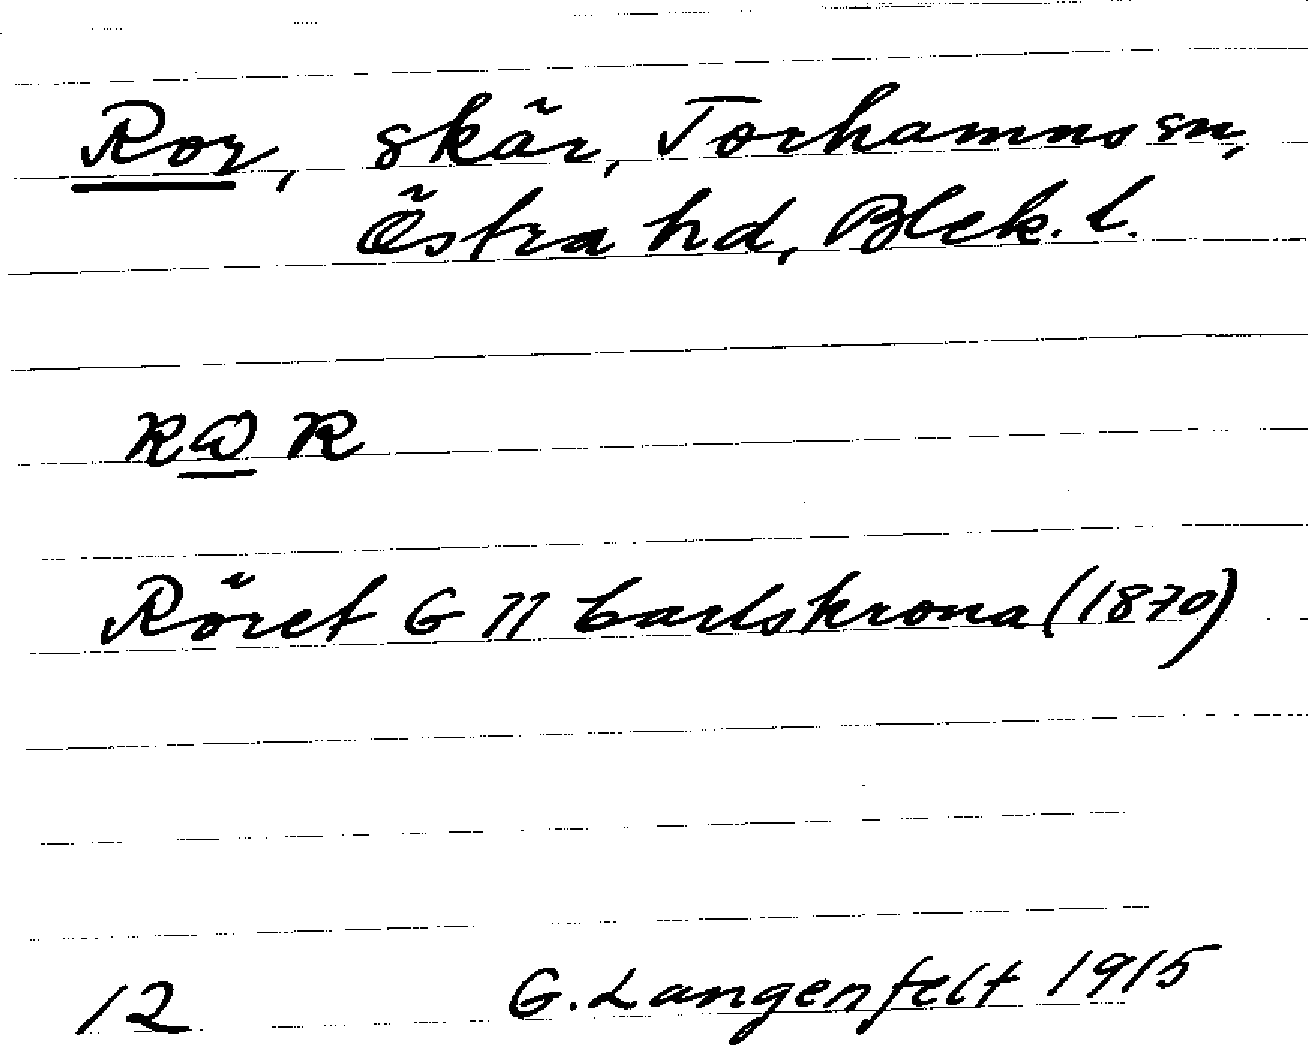 Ror, skär, Torhamns sn,
Östra hd, Blek. l.
Röret G 11 Carlskrona (1870)
12 G. Langenfelt 1915